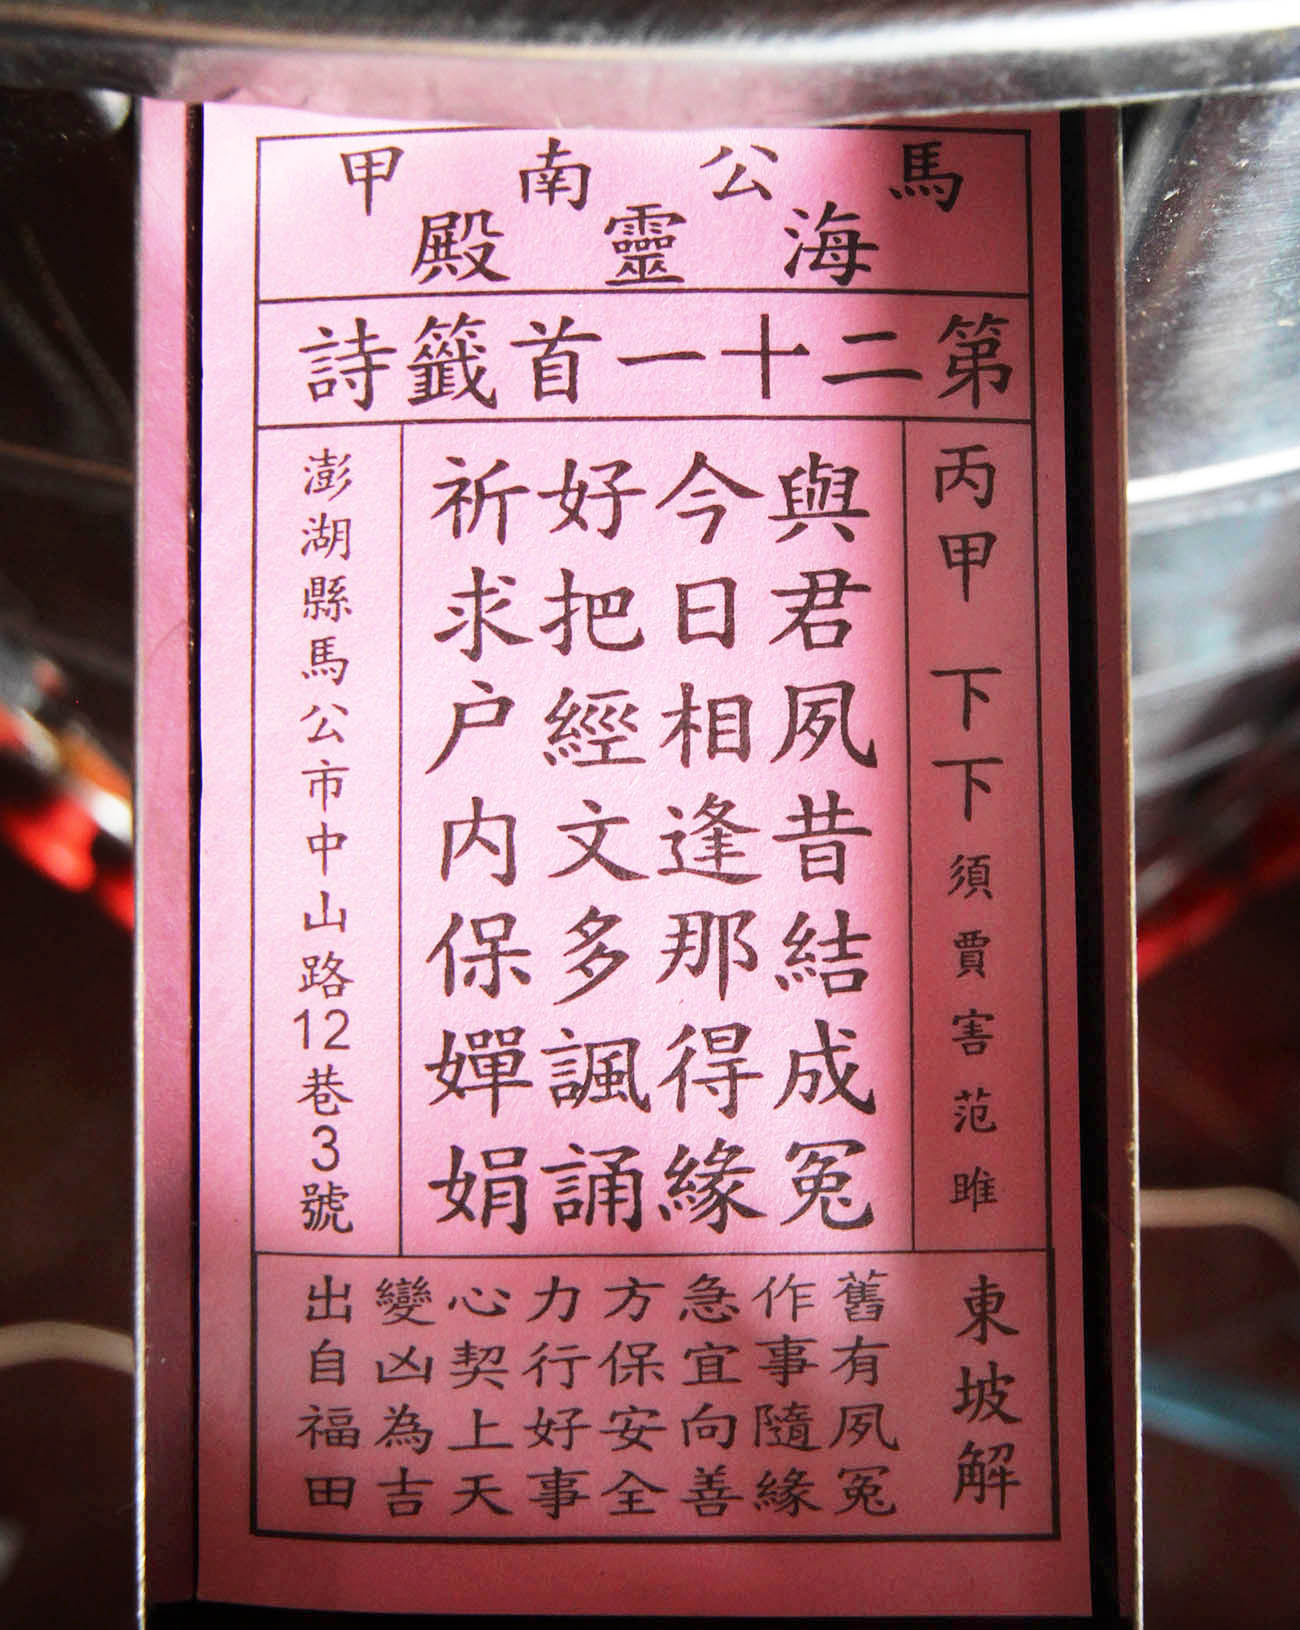 馬公南甲
海靈殿
第二十一首籤詩
丙甲 下下 須賈害范雎
與君夙昔結成冤
今日相逢那得緣
好把經文多諷誦
祈求户內保嬋娟
澎湖縣馬公市中山路12巷3號
東坡解
舊有夙冤
作事隨緣
急宜向善
方保安全
力行好事
心契上天
變凶為吉
出自福田